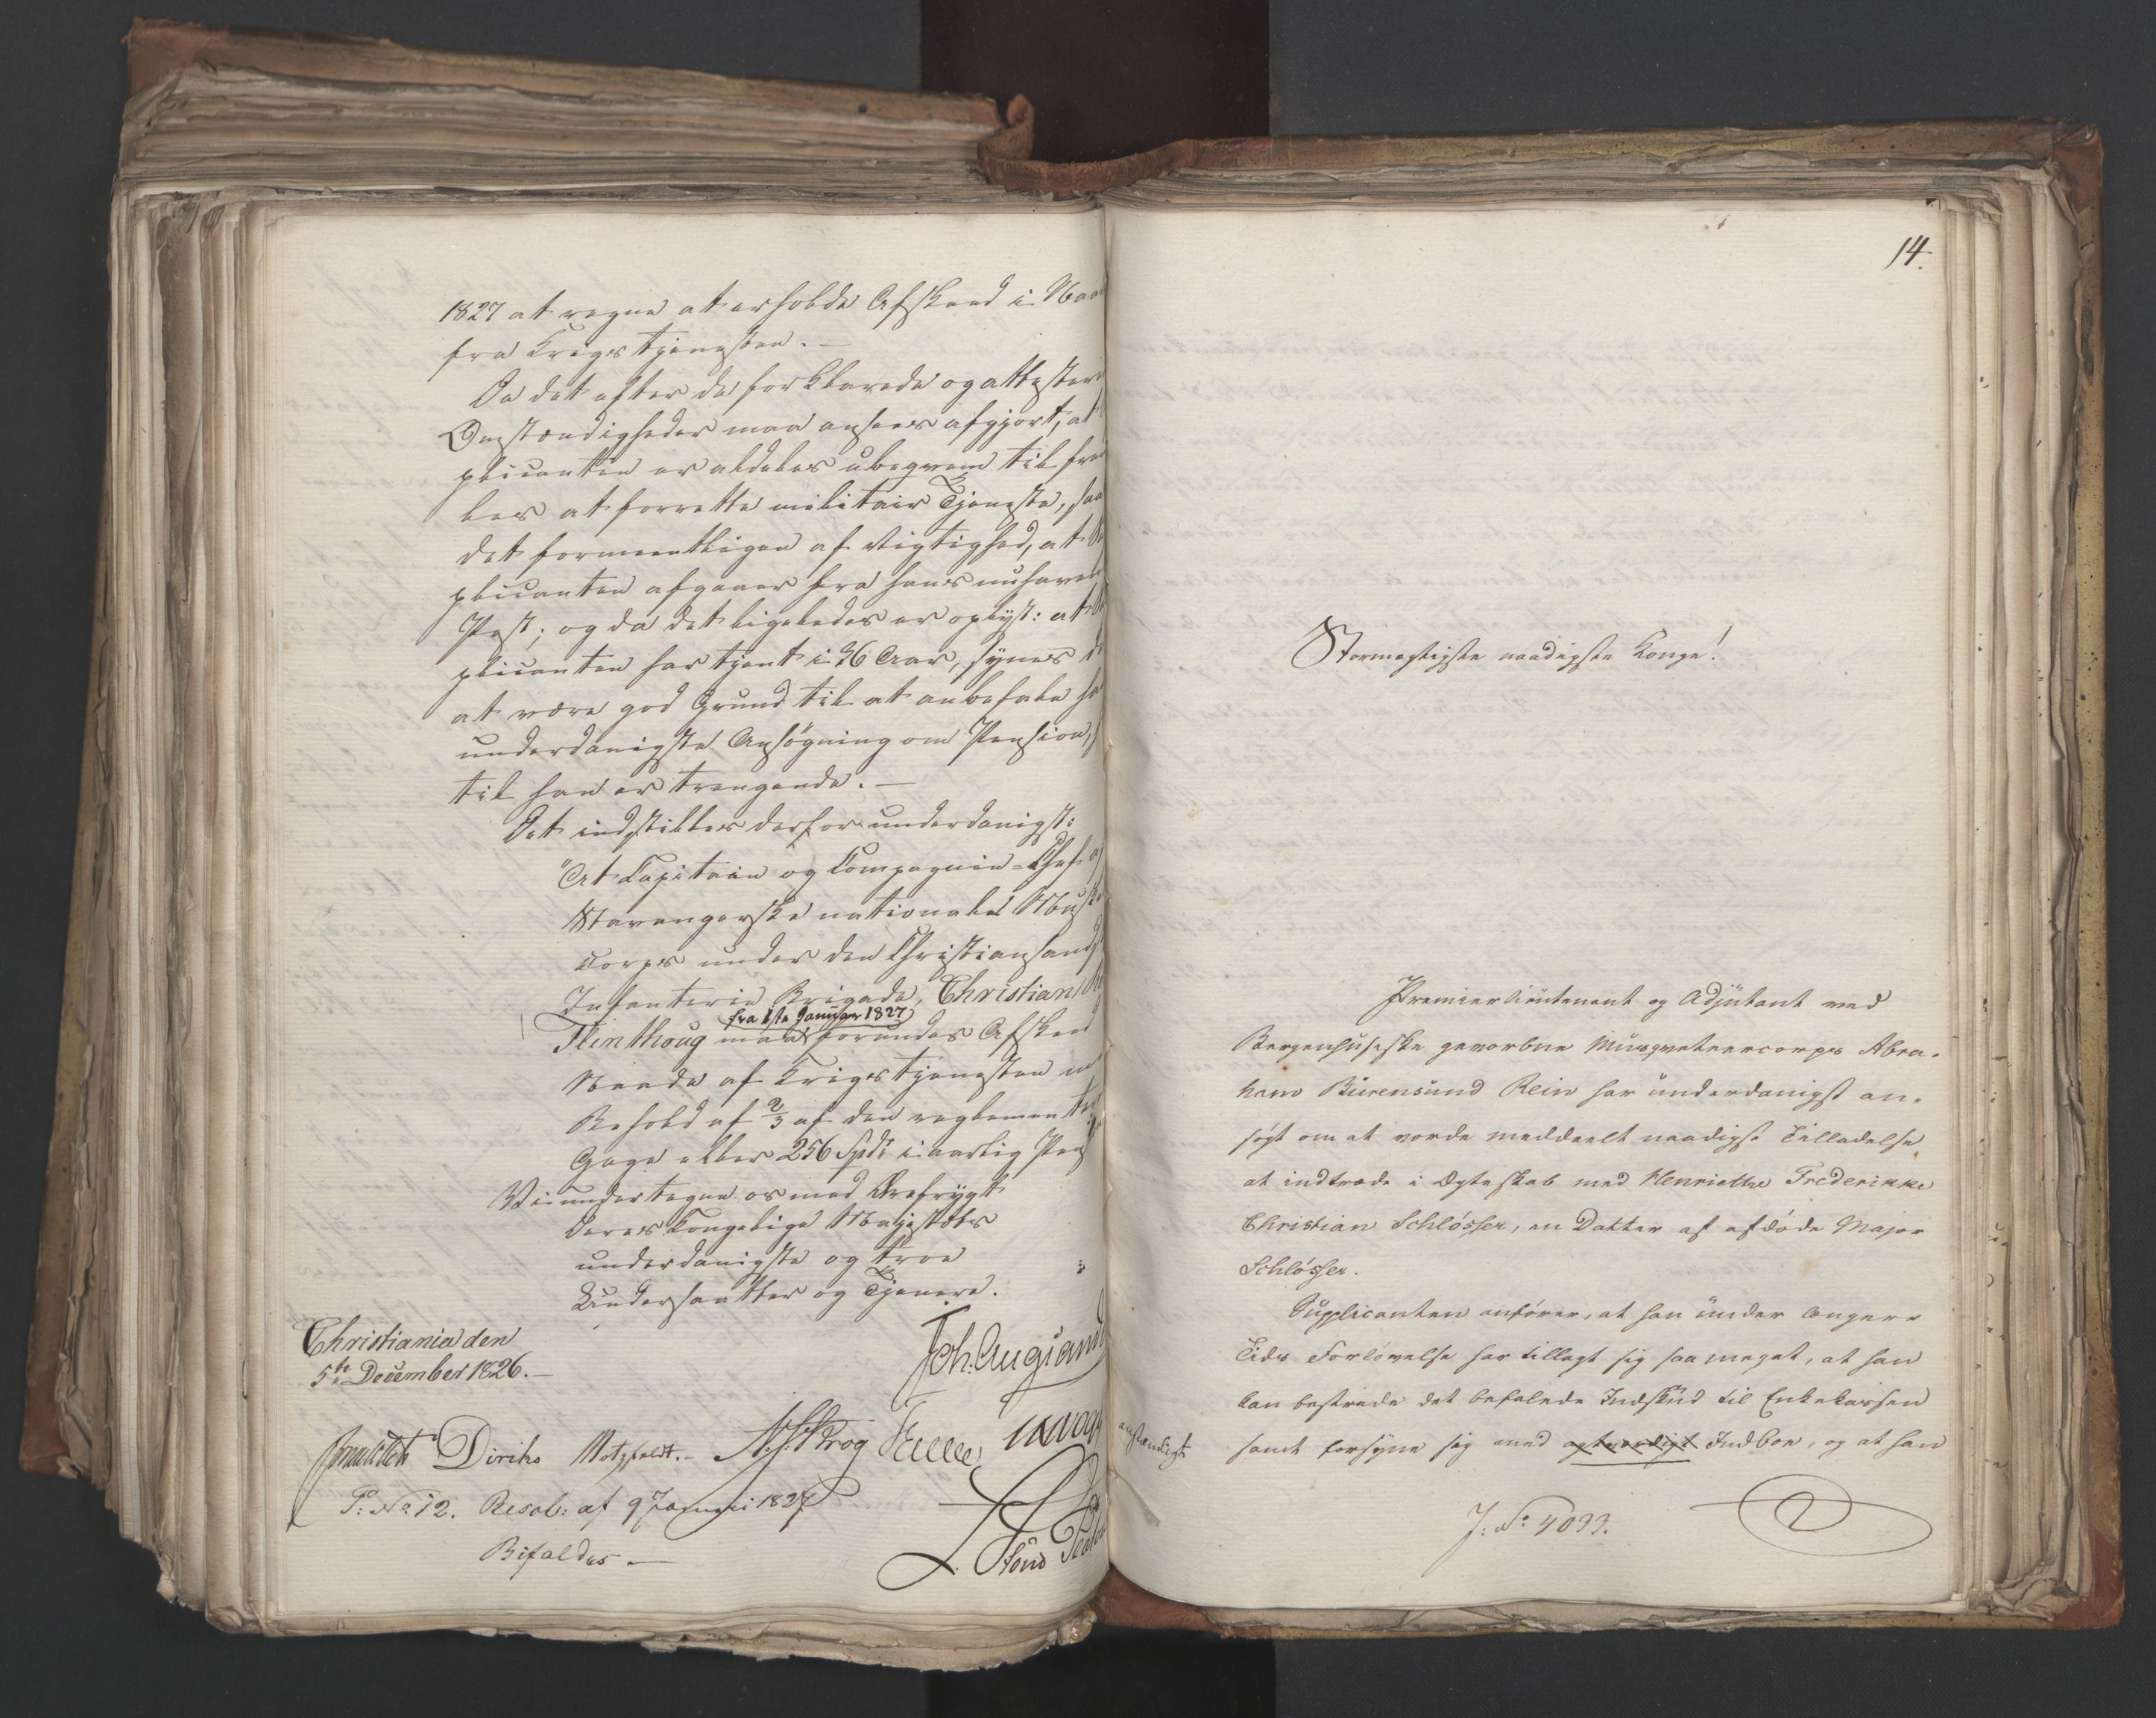 1827 at regne at erholde Afskeed i Naa
fra Krigstjenesten. —
Da det efter de forklarede og attestere
Omstændigheder maa ansees afgjort, at
plicanten er aldeles ubeqvem til frem
les at forrette militair Tjeneste, saa
det formeentligen af Vigtighed, at Su
plicanten afgaaer fra hans nuhaven
Post; og da det ligeledes er oplyst: at Su
plicanten har tjent i 36 Aar, synes de
at være god Grund til at anbefale ha
underdanigste Ansøgning om Pension,
til han er trængende. —
Det indstilles derfor underdanigst:
"At Capitain og Compagnie-Chef
Stavangerske nationale Musk
corps under den Christiansand
Infanterie Brigade, Christian
fra 1ste Januar 1827
Flinthoug maa forundes Afskeed
Naade af Krigstjenesten m
Behold af 2/3 af den reglementere
Gage eller 256 Spd: i aarlig Pens
Vi undertegne os med Ærefrygt
Deres Kongelige Majestæts
underdanigste og troe
Undersaatter og Tjenere.
Christiania den
5te December 1826. —
Joh. Aug: Sand
Diriks Motzfeldt. — Krog
P: No 12. Resol: af 9 Januari 1827
Bifaldes. —
14.
Stormægtigste naadigste Konge!
Premierlieutenant og Adjutant ved
Bergenhusiske gevorbne Musqveteercorps Abra-
ham Buvensund Rein har underdanigst an-
søgt om at vorde meddeelt naadigst Tilladelse
at indtræde i Ægteskab med Henriethe Frederikke
Christian Schlösser, en Datter af afdøde Major
Schlösser.
Supplicanten anfører, at han under længere
Tids Forlovelse har tillagt sig saa meget, at han
kan bestride det befalede Indskud til Enkekassen
anstændigt
samt forsyne sig med Indboe, og at han
J: No 4033.